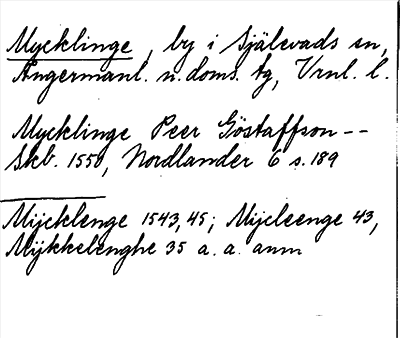 Mycklinge, by i Själevads sn,
Ångermanl. n. doms. tg, Vrnl. l.
Mycklinge Peer Göstaffson --
Skb. 1550, Nordlander 6 s. 189
Mijcklenge 1543, 45; Mijcleenge 43,
Mijkkelenghe 35 a. a. anm